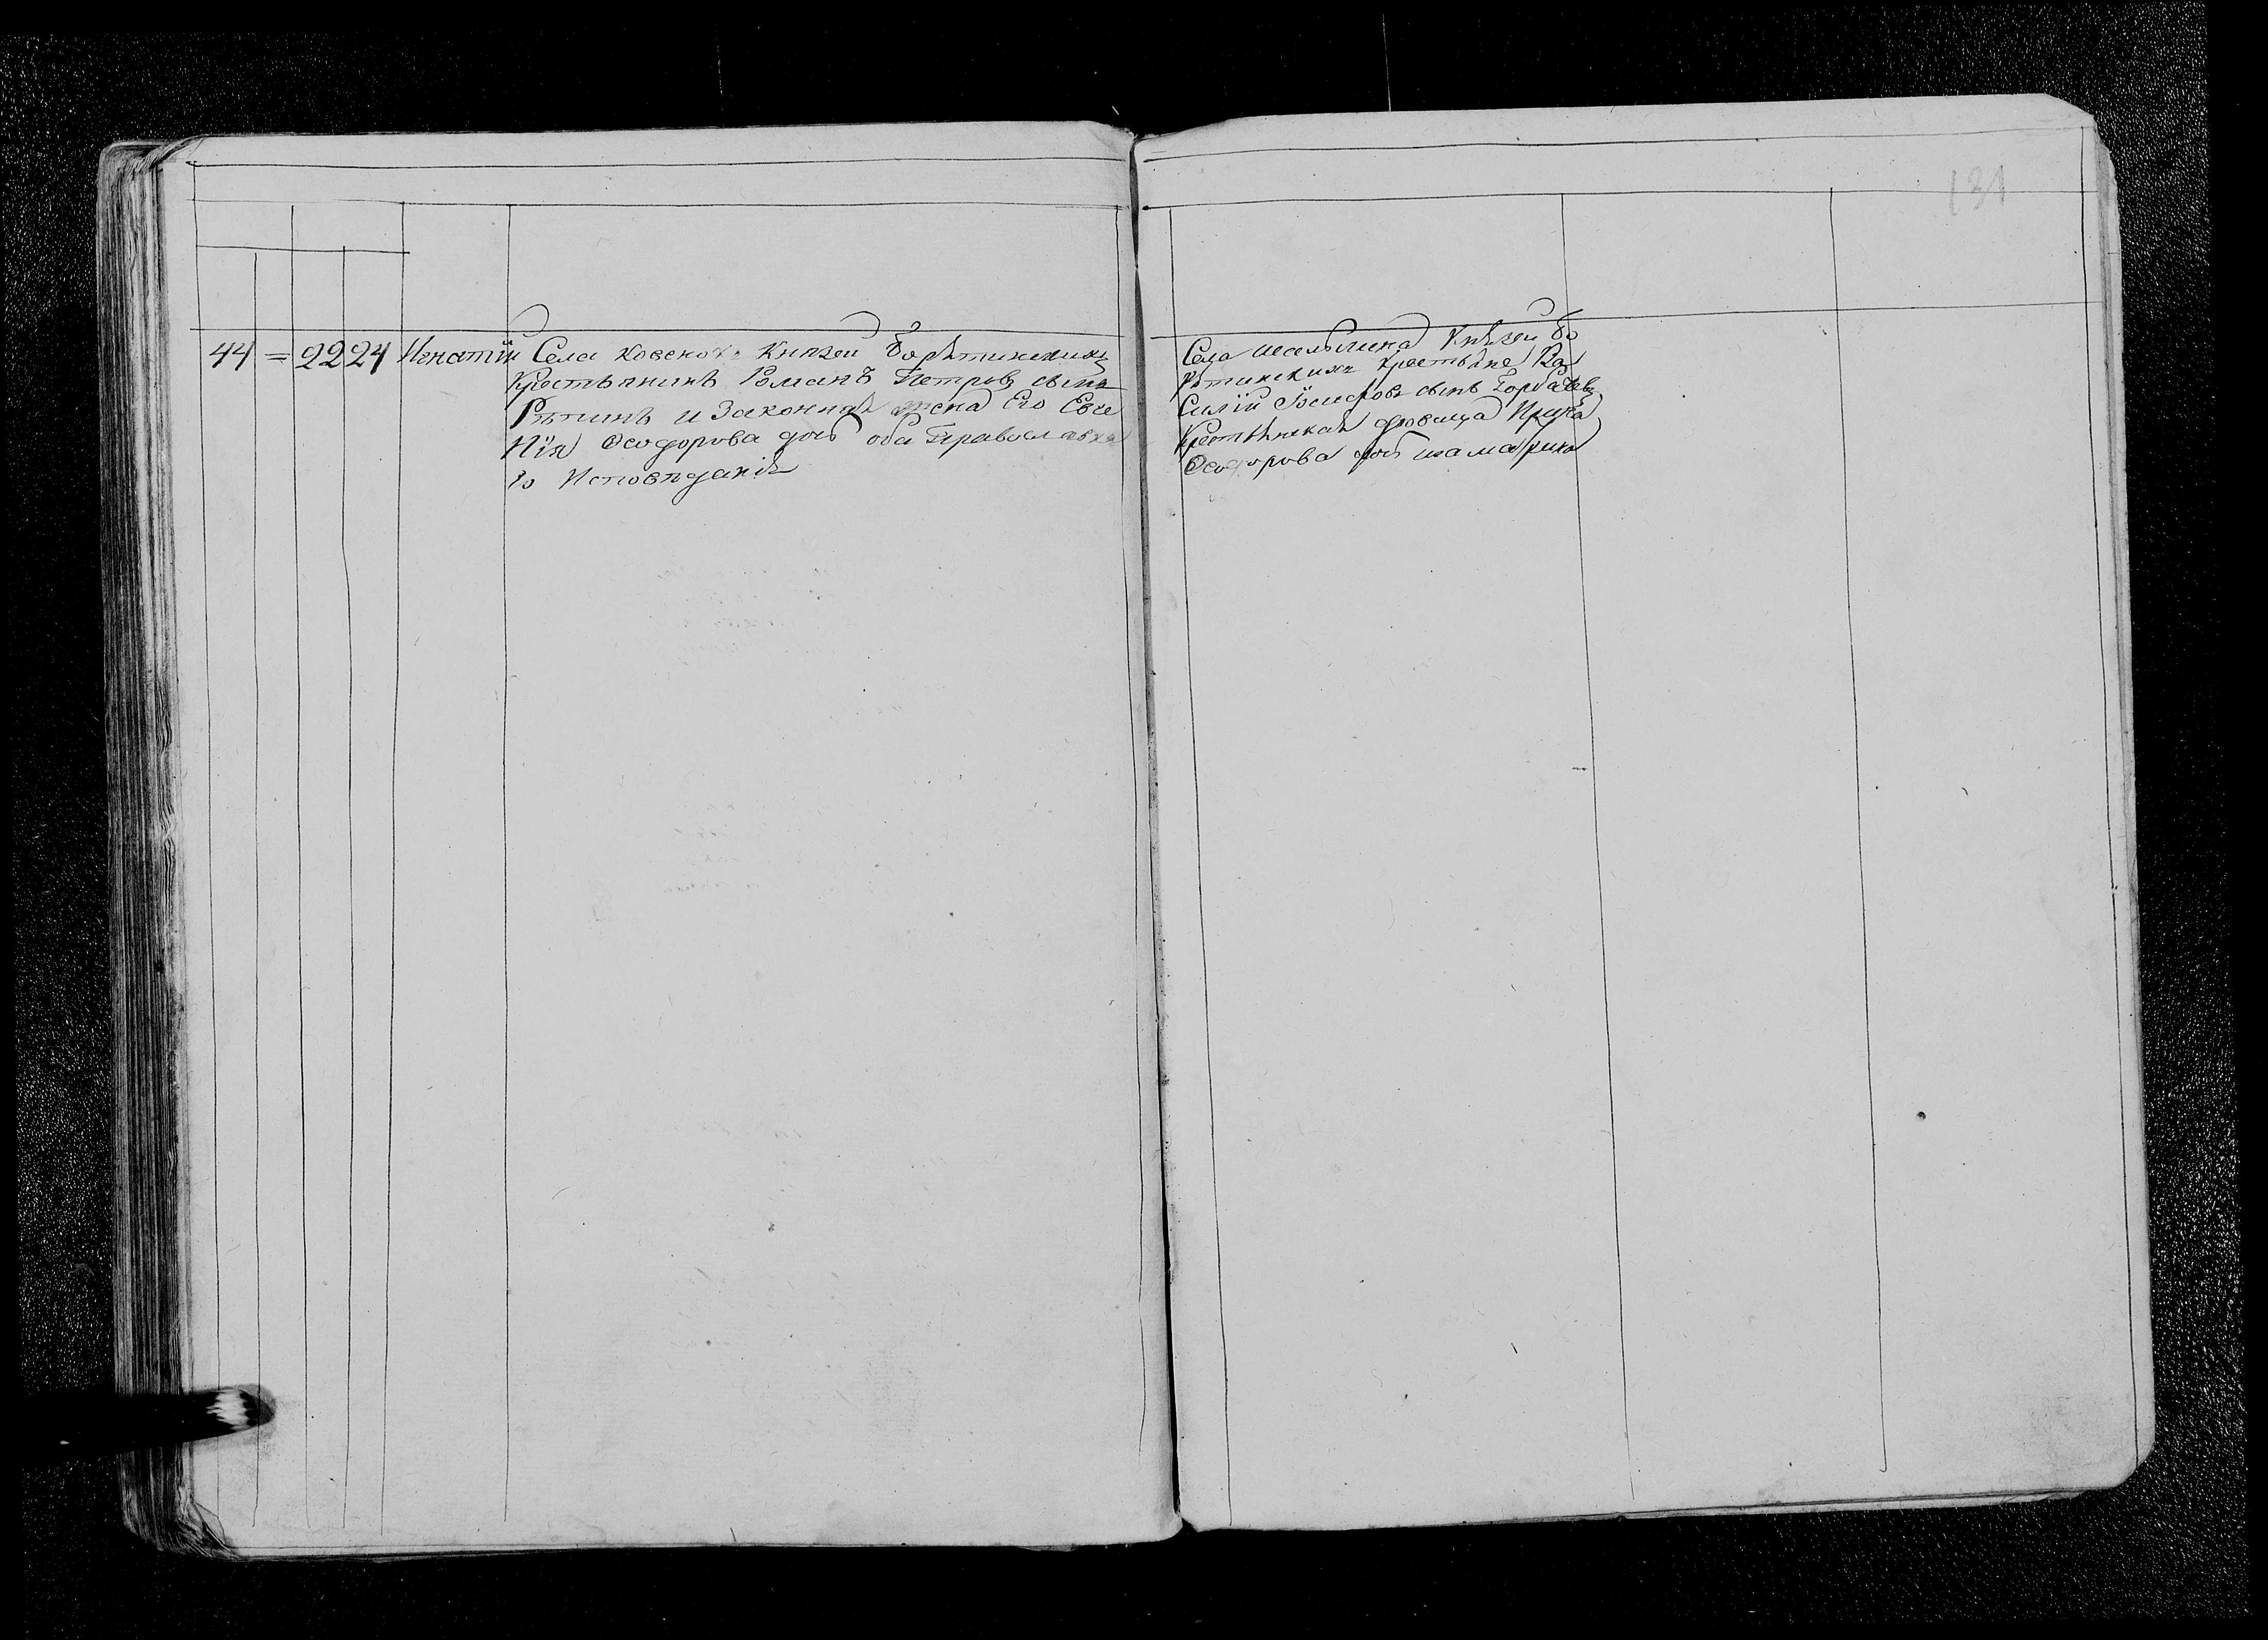 131
44 = 22 24 Игнатiй Села Князей Борятинскихъ
Крестьянинъ Романъ Петровъ сынъ
Рѣпинъ и Законная жена Его Евге
нiя Ѳеодорова дочь оба Православна
го Исповѣданiя
Села Князей Бо
рятинскихъ Крестьяне Ва
силiй Iосифовъ сынъ Горбачевъ
Крестьянская вдовица Ирина
Ѳеодорова дочь